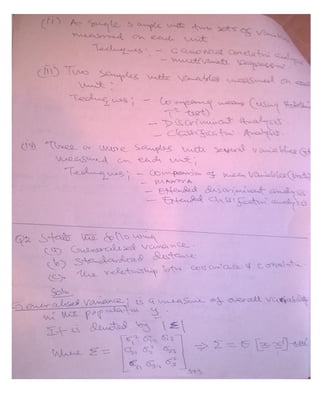 (ii) A single sample with two sets of variables
measured on each unit
Techniques: - canonical correlation analysis
- multivariate regression
(iii) Two samples with variables measured on each
unit:
Techniques; - Comparing means (using Hotelling
T² test)
- Discriminant Analysis
- Classification Analysis.
(iv) Three or more samples with several variables
measured on each unit;
Techniques; - Comparison of mean variables
- MANOVA
- Extended discriminant analysis
- Extended classification analysis
Q2 State the following
(a) Generalised variance.
(b) Standardised distance
(c) The relationship btn covariance &
Soln
Generalised variance; is a measure of overall variability
in the population y
It is denoted by |Σ|
Where Σ =